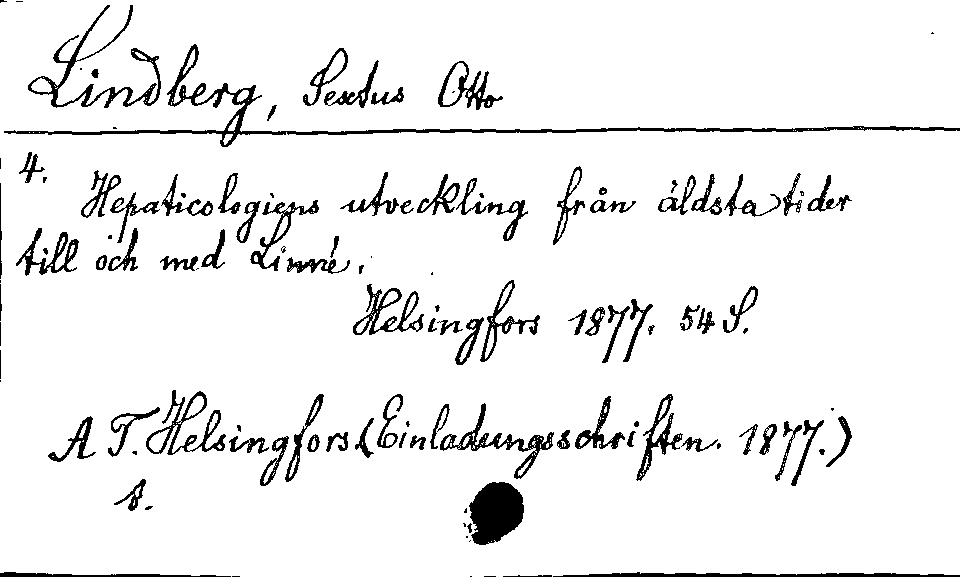 Lindberg, Sextus Otto
4.
Hepaticologiens utveckling från äldsta tider
till och med Linné.
Helsingfors 1877. 54 S.
A T. Helsingfors. (Einladungsschriften. 1877.)
8.